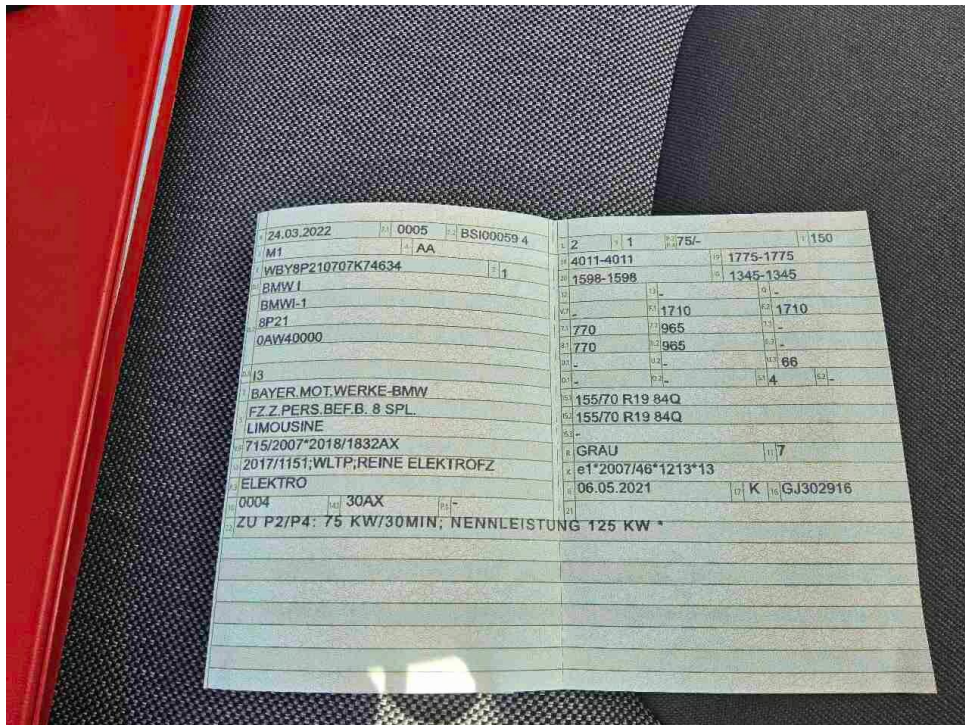 24.03.2022 0005 BSI00059 4
M1 AA
WBY8P210707K74634 1
BMW I
BMWI-1
8P21
0AW40000
I3
BAYER.MOT.WERKE-BMW
FZ.Z.PERS.BEF.B. 8 SPL.
LIMOUSINE
715/2007*2018/1832AX
2017/1151;WLTP;REINE ELEKTROFZ
ELEKTRO
0004 30AX -
ZU P2/P4: 75 KW/30MIN; NENNLEISTUNG 125 KW *
2 1 75/- 150
4011-4011 1775-1775
1598-1598 1345-1345
- -
- 1710 1710
770 965 -
770 965 -
- - 66
- - 4 -
155/70 R19 84Q
155/70 R19 84Q
-
GRAU 7
e1*2007/46*1213*13
06.05.2021 K GJ302916